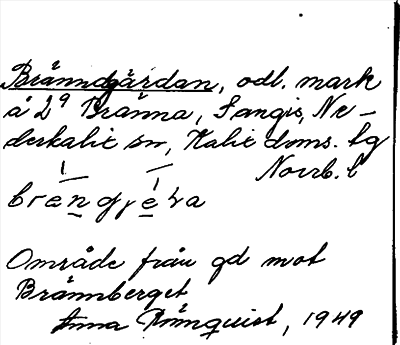 Bränndgärdan, odl. mark
å 2ª Bränna, Sangis, Ne-
derkalix sn, Kalix doms. tg
Norrb. l
Område från gd mot
Brännberget
Anna Rönnquist, 1949